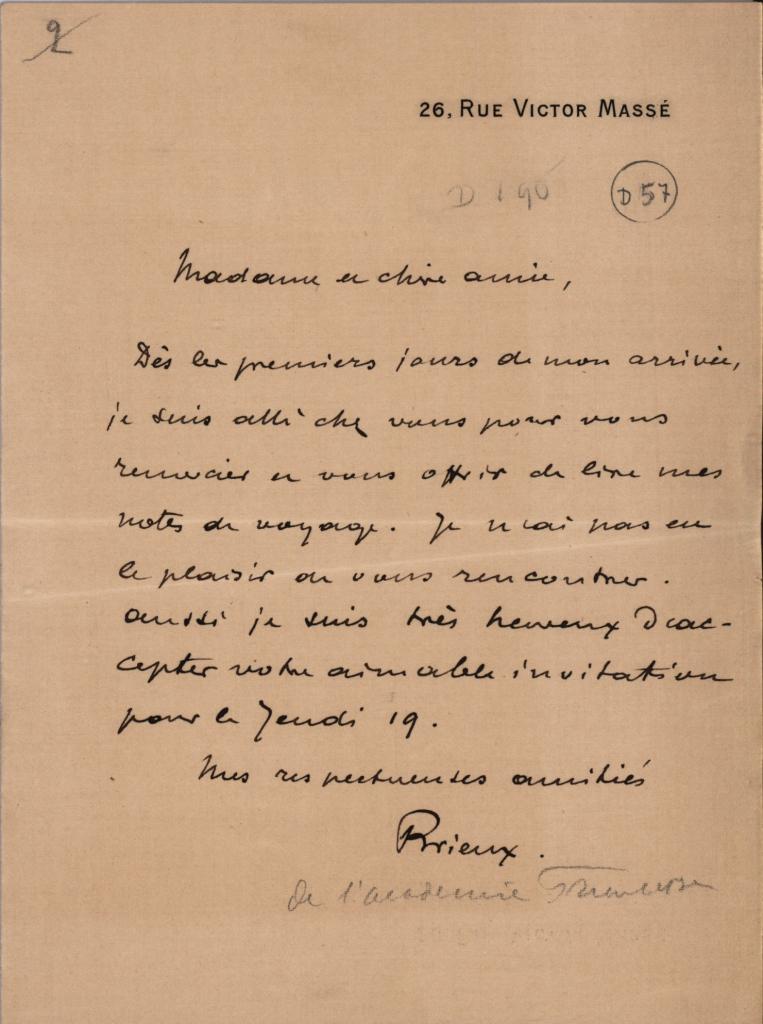 2
26, RUE VICTOR MASSÉ
D 190
D 57
Madame et chère amie,
Dès les premiers jours de mon arrivée,
je suis allé chez vous pour vous
remercier et vous offrir de lire mes
notes de voyage. Je n'ai pas eu
le plaisir de vous rencontrer.
aussi je suis très heureux d'ac-
cepter votre aimable invitation
pour le Jeudi 19.
Mes respectueuses amitiés
Brieux.
de l'académie Française